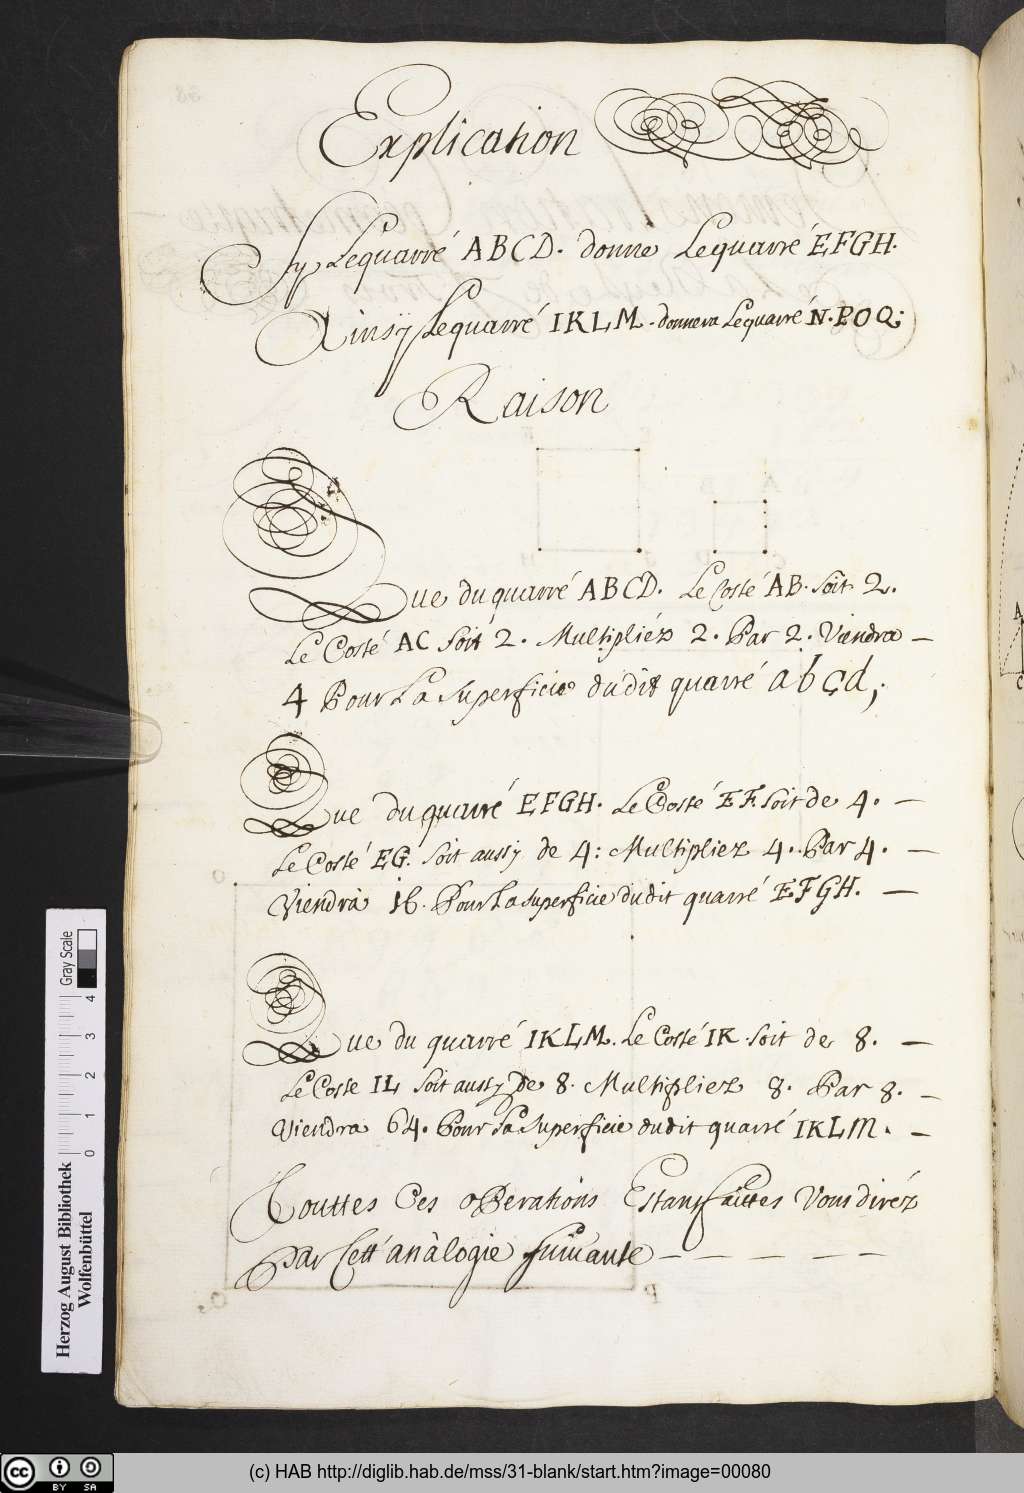 Explication
Sy Lequarré ABCD. donne Lequarré EFGH.
Ainsÿ Lequarré IKLM. donnera Lequarré N.POQ;
Raison
Que du quarré ABCD. Le Costé AB. soit 2.
Le Costé AC soit 2. Multipliéz 2. Par 2. Viendra —
4 Pour La Superficie dudit quarré abcd;
Que du quarré EFGH. Le Costé EF. soit de 4. —
Le Costé EG. soit aussy de 4: Multipliez 4. Par 4. —
Viendrà 16. Pour La Superficie dudit quarré EFGH. —
Que du quarré IKLM. Le Costé IK. soit de 8. —
Le Coste IL soit aussy de 8. Multipliez 8. Par 8. —
Viendra 64. Pour La Superficie dudit quarré IKLM. —
Touttes Ces operations Estant faittes Vous diréz
Par Cett' anàlogie suivante — — — — —
Herzog August Bibliothek
Wolfenbüttel
Gray Scale
0 1 2 3 4
cc BY SA
(c) HAB http://diglib.hab.de/mss/31-blank/start.htm?image=00080